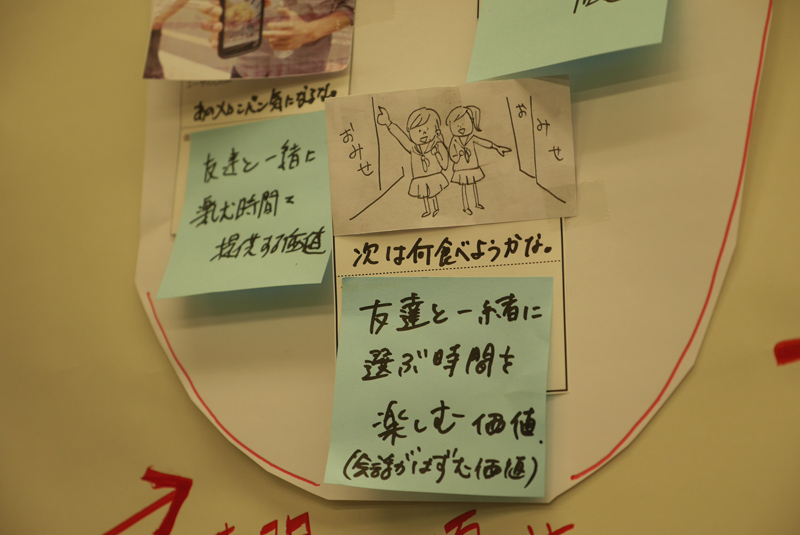 あのメロンパン気になるな。
友達と一緒に
楽しむ時間を
提供する価値
おみせ
おみせ
次は何食べようかな。
友達と一緒に
選ぶ時間を
楽しむ価値.
(会話がはずむ価値)